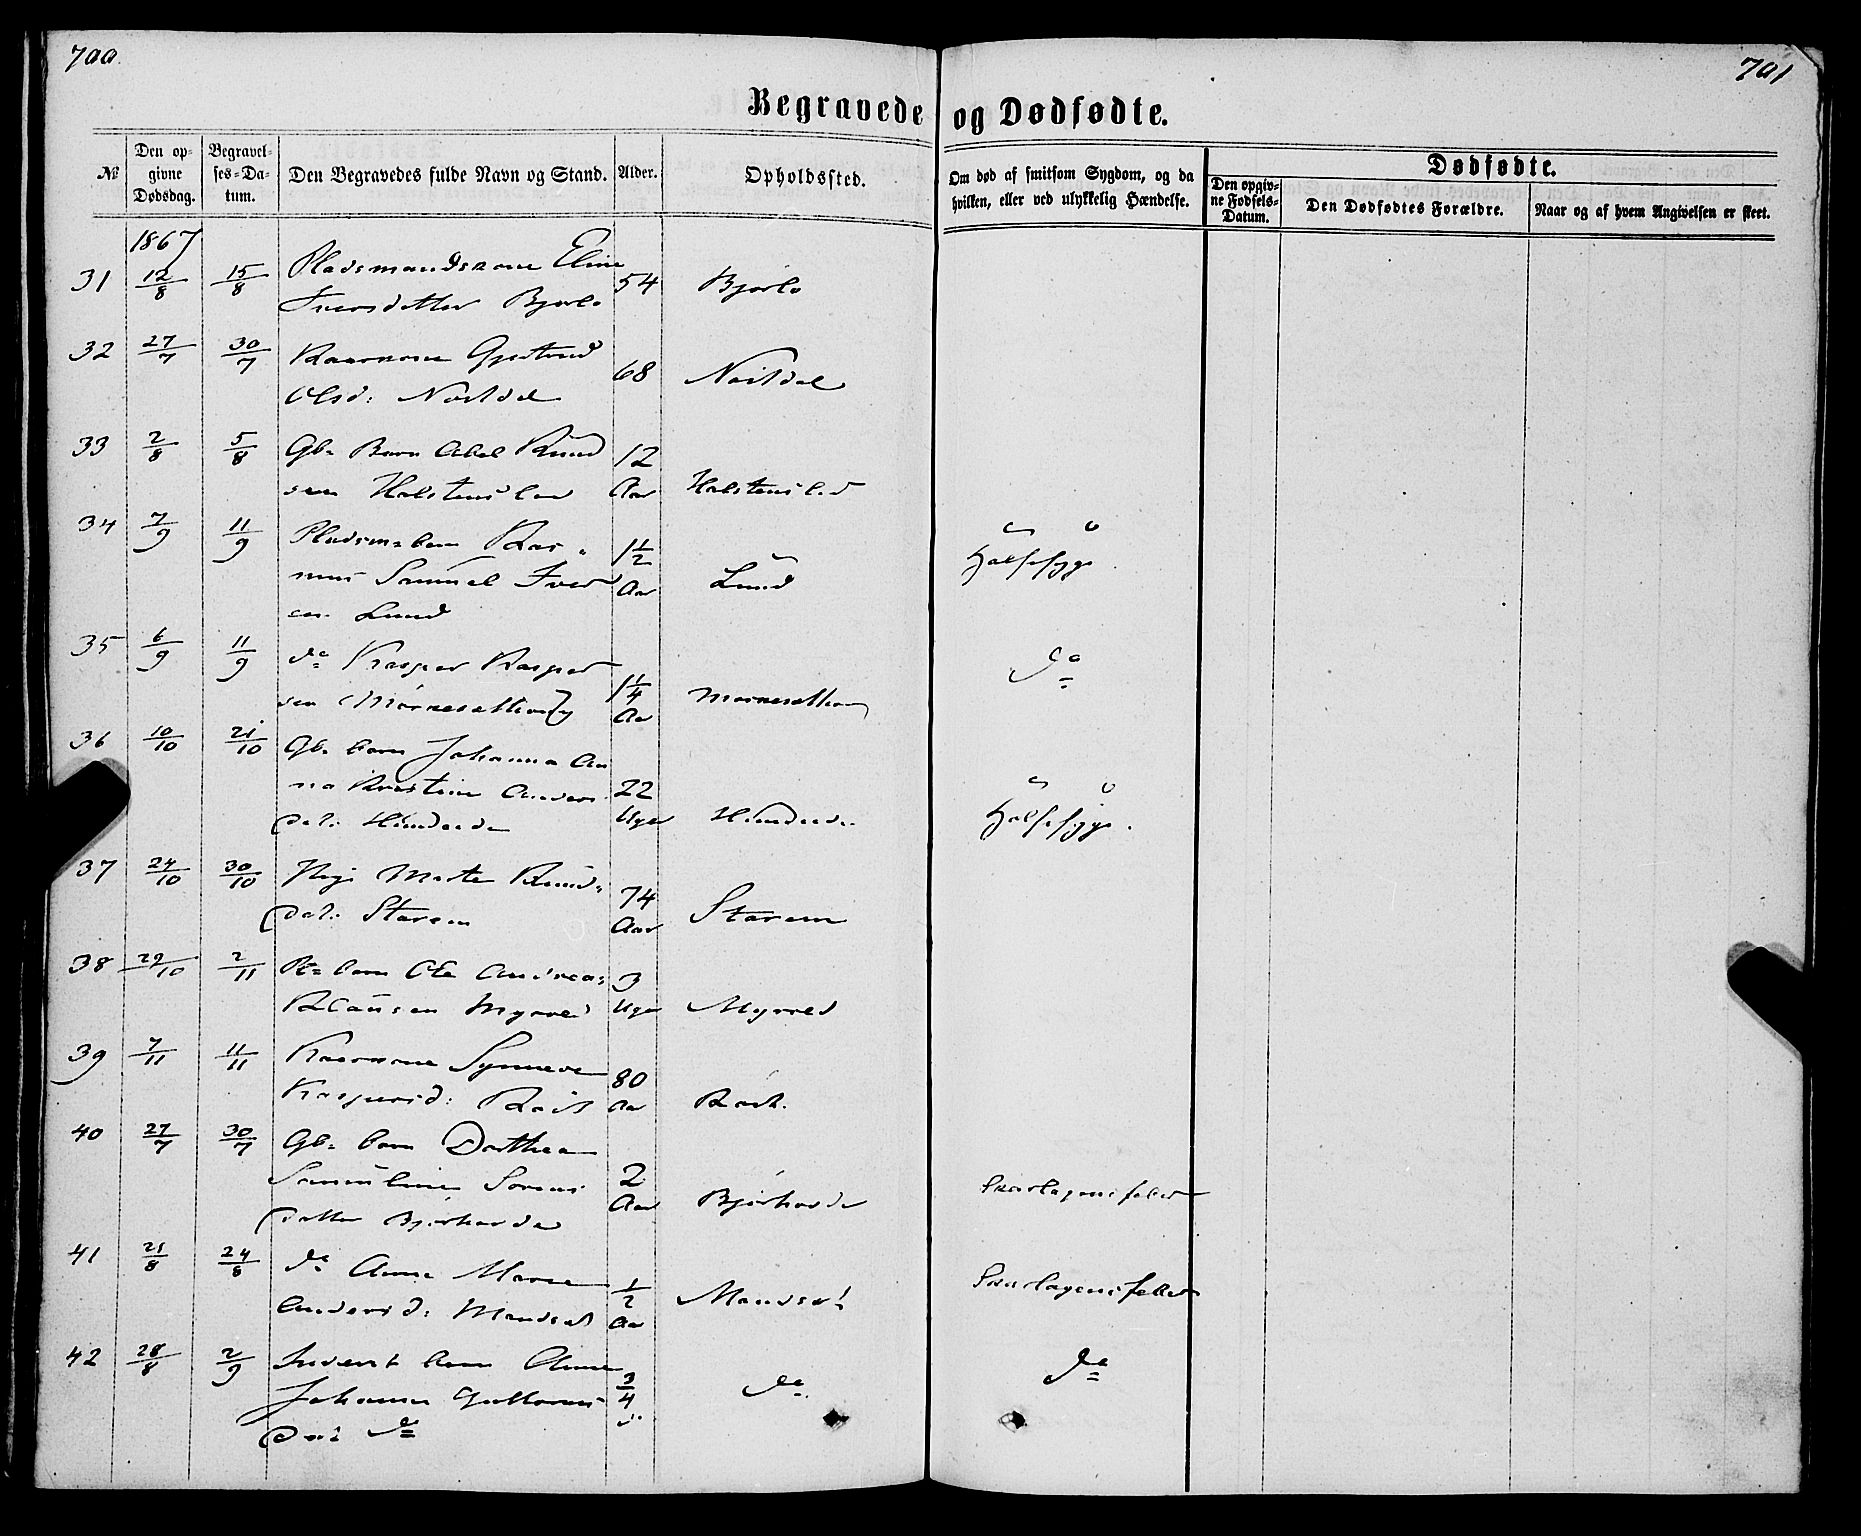 700.
701
Begravede og Dødfødte.
№
Den opgivne Dødsdag.
Begravelses-Datum.
Den Begravedes fulde Navn og Stand.
Alder.
Opholdssted.
Om død af smitsom Sygdom, og da hvilken, eller ved ulykkelig Hændelse.
Dødfødte.
Den opgivne Fødsels-Datum.
Den Dødfødtes Forældre.
Naar og af hvem Angivelsen er skeet.
1867
31 12/8 15/8 Pladsmandskone Eline 54 Bjørlo
Iversdatter Bjørlo
32 27/7 30/7 Kaarkone Gjertrud 68 Nordal
Olsd: Nordal
33 2/8 5/8 Gb= Barn Abel Knud 12
sen Aar
34 7/9 11/9 Pladsm= barn Ras= 1½ Lund Halssyge
mus Samuel Iver Aar
sen Lund
35 6/9 11/9 do Kasper Kasper 1¼ do
sen Aar
36 10/10 21/10 Gb= barn Johanna An 22 Hundeide Halssyge.
na Kristine Anders Uger
dat: Hundeide
37 24/10 30/10 Pige Marte Knuds= 74 Starem
dat: Starem Aar
38 29/10 2/11 Pl= barn Ole Andreas 3 Myrved
Klausen Myrved Uger
39 7/11 11/11 Kaarkone Synneve 80
Kaspersd: Aar
40 27/7 30/7 Gb= barn Dorthea 2 Bjørhovde Skarlagensfeber
Samuline Sørens Aar
datter Bjørhovde
41 21/8 24/8 do Anne Marie ½ Maurset Skarlagensfeber
Andersd: Maurset Aar
42 28/8 2/9 Inderst barn Anne ¾ do. do
Johanne do
dat: do